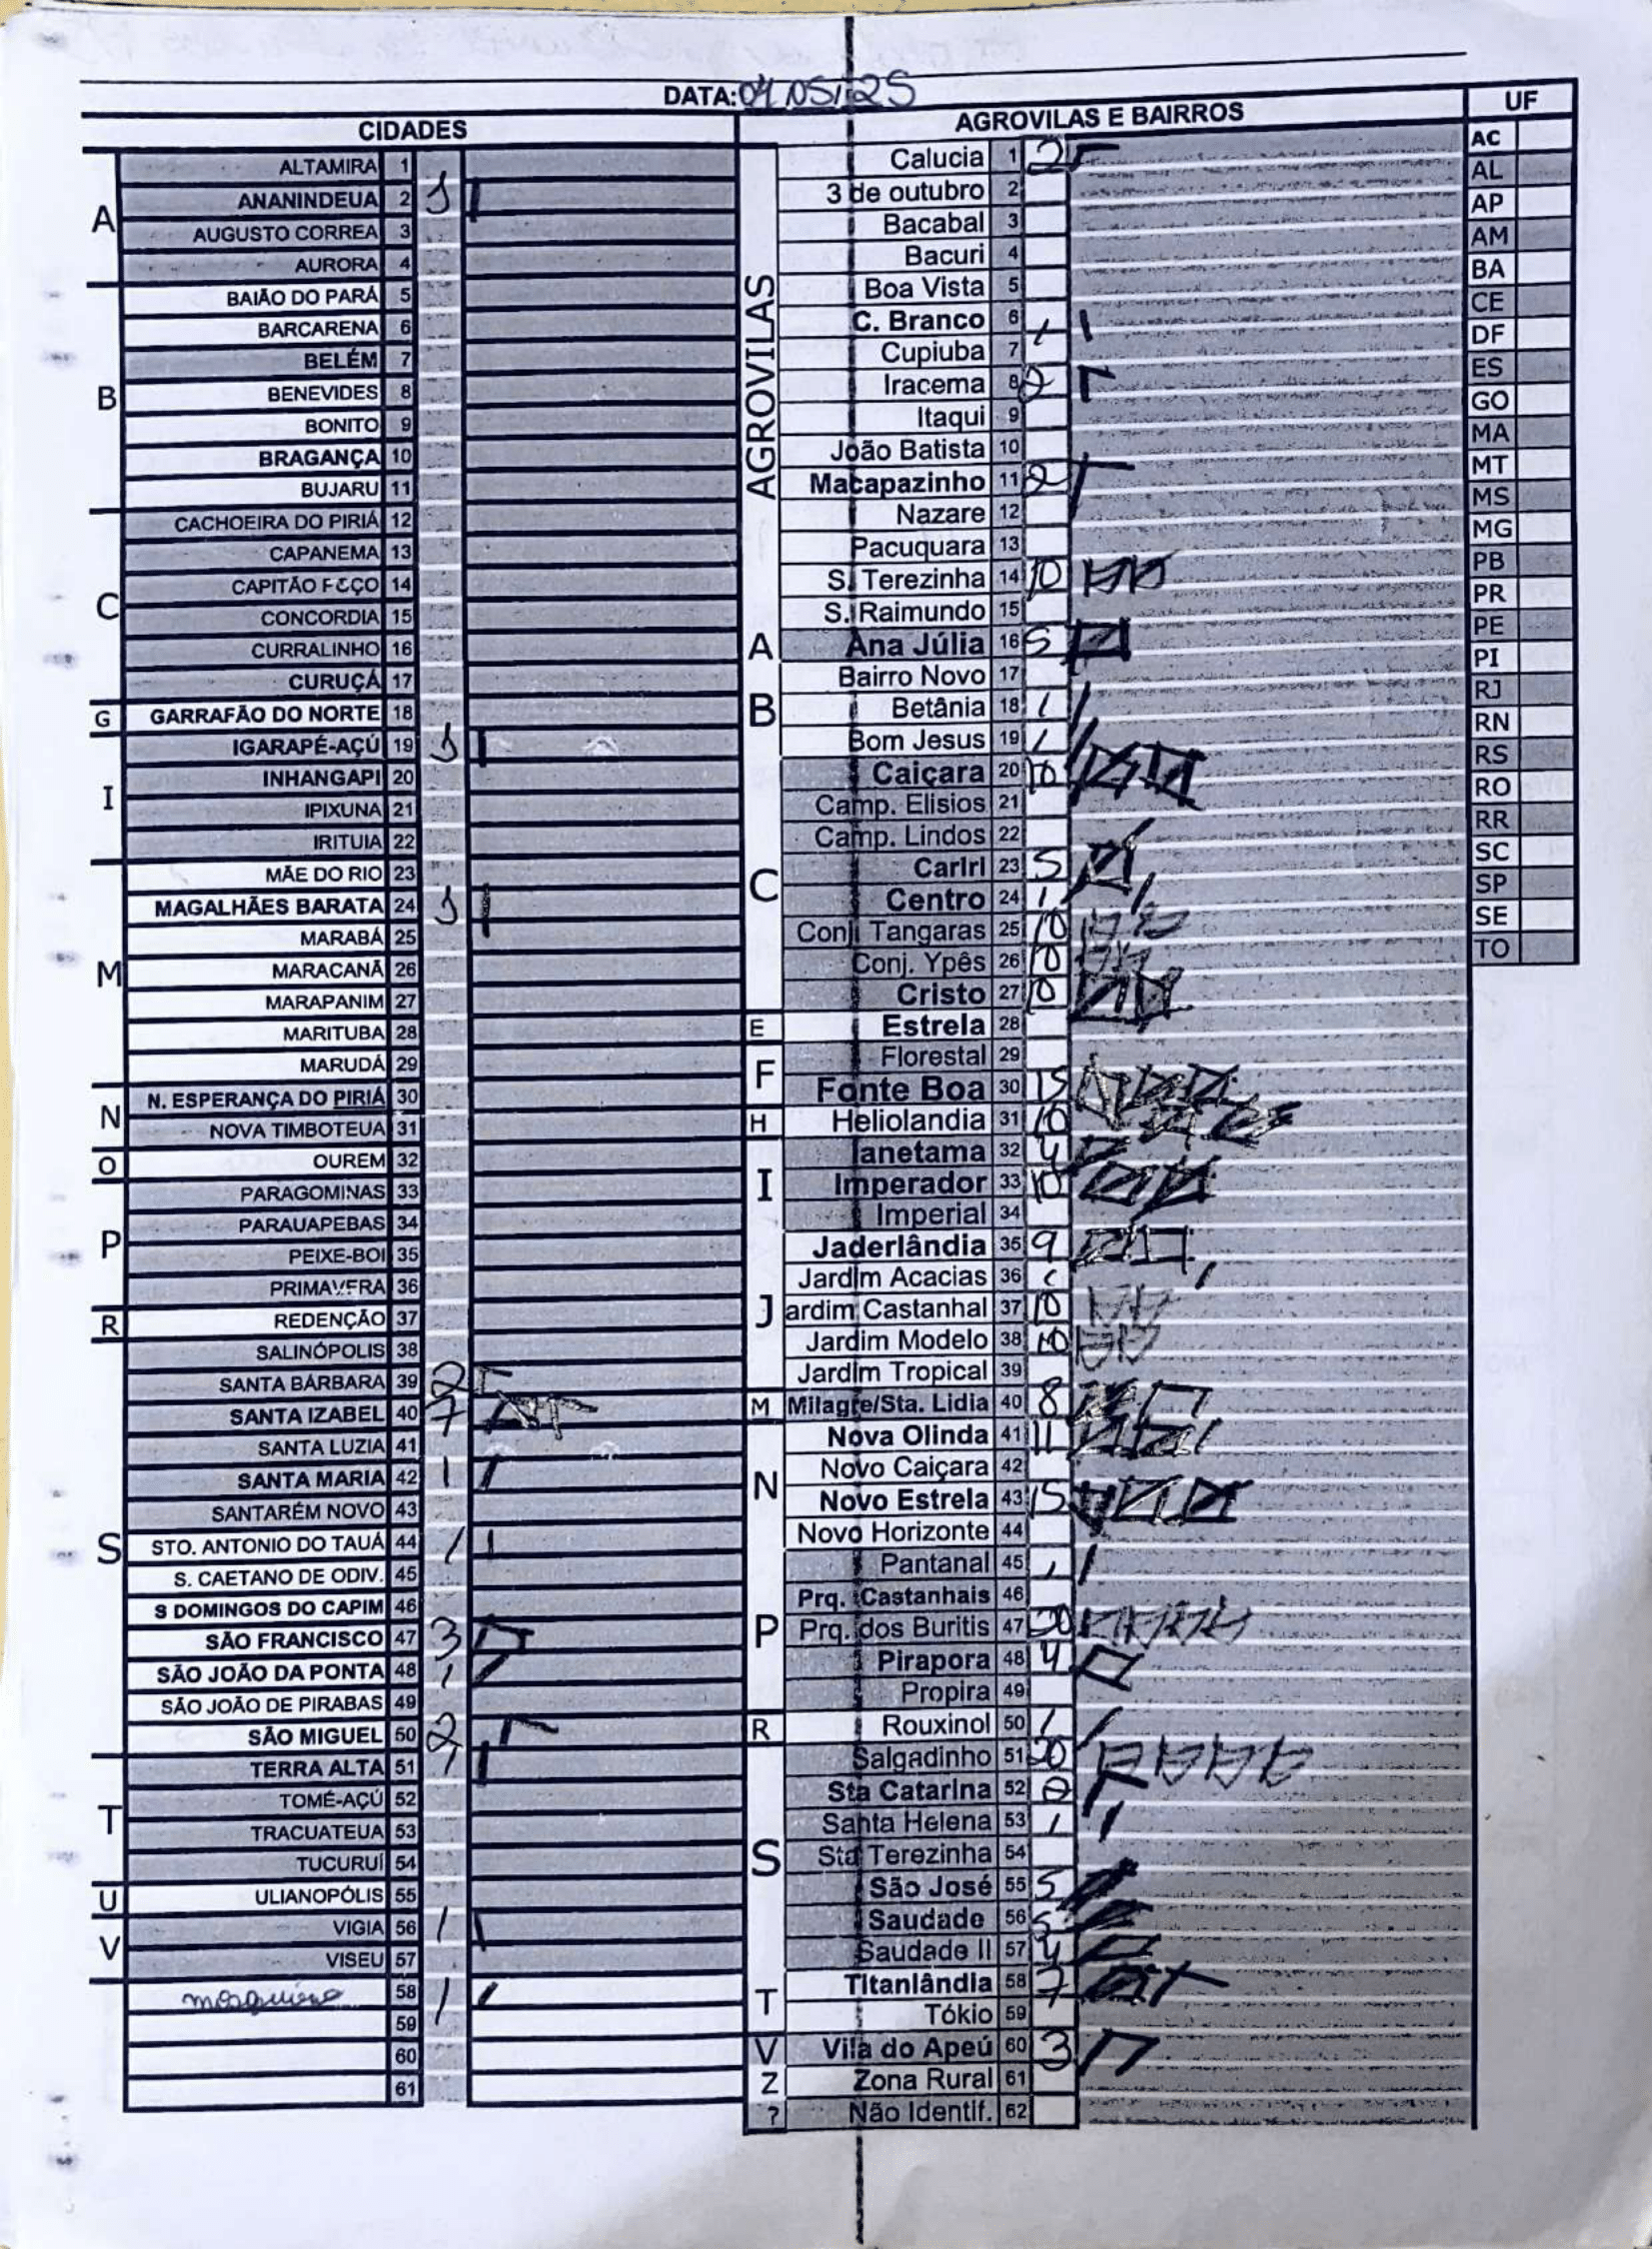 DATA: 04/05/25
CIDADES
A
ALTAMIRA 1
ANANINDEUA 2 1
AUGUSTO CORREA 3
AURORA 4
B
BAIÃO DO PARÁ 5
BARCARENA 6
BELÉM 7
BENEVIDES 8
BONITO 9
BRAGANÇA 10
BUJARU 11
C
CACHOEIRA DO PIRIÁ 12
CAPANEMA 13
CAPITÃO POÇO 14
CONCORDIA 15
CURRALINHO 16
CURUÇÁ 17
G
GARRAFÃO DO NORTE 18
I
IGARAPÉ-AÇÚ 19 1
INHANGAPI 20
IPIXUNA 21
IRITUIA 22
M
MÃE DO RIO 23
MAGALHÃES BARATA 24 1
MARABÁ 25
MARACANÃ 26
MARAPANIM 27
MARITUBA 28
MARUDÁ 29
N
N. ESPERANÇA DO PIRIÁ 30
NOVA TIMBOTEUA 31
O
OUREM 32
P
PARAGOMINAS 33
PARAUAPEBAS 34
PEIXE-BOI 35
PRIMAVERA 36
R
REDENÇÃO 37
S
SALINÓPOLIS 38
SANTA BÁRBARA 39 2
SANTA IZABEL 40 7
SANTA LUZIA 41
SANTA MARIA 42 1
SANTARÉM NOVO 43
STO. ANTONIO DO TAUÁ 44 1
S. CAETANO DE ODIV. 45
S DOMINGOS DO CAPIM 46
SÃO FRANCISCO 47 3
SÃO JOÃO DA PONTA 48 1
SÃO JOÃO DE PIRABAS 49
SÃO MIGUEL 50 2
T
TERRA ALTA 51 1
TOMÉ-AÇÚ 52
TRACUATEUA 53
TUCURUÍ 54
U
ULIANOPÓLIS 55
V
VIGIA 56 1
VISEU 57
58 1
59
60
61
AGROVILAS E BAIRROS
AGROVILAS
Calucia 1 2
3 de outubro 2
Bacabal 3
Bacuri 4
Boa Vista 5
C. Branco 6 1
Cupiuba 7
Iracema 8 2
Itaqui 9
João Batista 10
Macapazinho 11 2
Nazare 12
Pacuquara 13
S. Terezinha 14 10
S. Raimundo 15
A
Ana Júlia 16 5
B
Bairro Novo 17
Betânia 18 1
Bom Jesus 19 1
C
Caiçara 20 10
Camp. Elisios 21
Camp. Lindos 22
Cariri 23 5
Centro 24 1
Conj. Tangaras 25 10
Conj. Ypês 26 10
Cristo 27 10
E
Estrela 28
F
Florestal 29
Fonte Boa 30 15
H
Heliolandia 31 10
I
Ianetama 32 4
Imperador 33 10
Imperial 34
J
Jaderlândia 35 9
Jardim Acacias 36 1
ardim Castanhal 37 10
Jardim Modelo 38 10
Jardim Tropical 39
M
Milagre/Sta. Lidia 40 8
N
Nova Olinda 41 11
Novo Caiçara 42
Novo Estrela 43 15
Novo Horizonte 44
P
Pantanal 45 1
Prq. Castanhais 46
Prq. dos Buritis 47 20
Pirapora 48 4
Propira 49
R
Rouxinol 50 1
S
Salgadinho 51 20
Sta Catarina 52 2
Santa Helena 53 1
Sta Terezinha 54
São José 55 5
Saudade 56 5
Saudade II 57 4
T
Titanlândia 58 7
Tókio 59
V
Vila do Apeú 60 3
Z
Zona Rural 61
?
Não Identif. 62
UF
AC
AL
AP
AM
BA
CE
DF
ES
GO
MA
MT
MS
MG
PB
PR
PE
PI
RJ
RN
RS
RO
RR
SC
SP
SE
TO